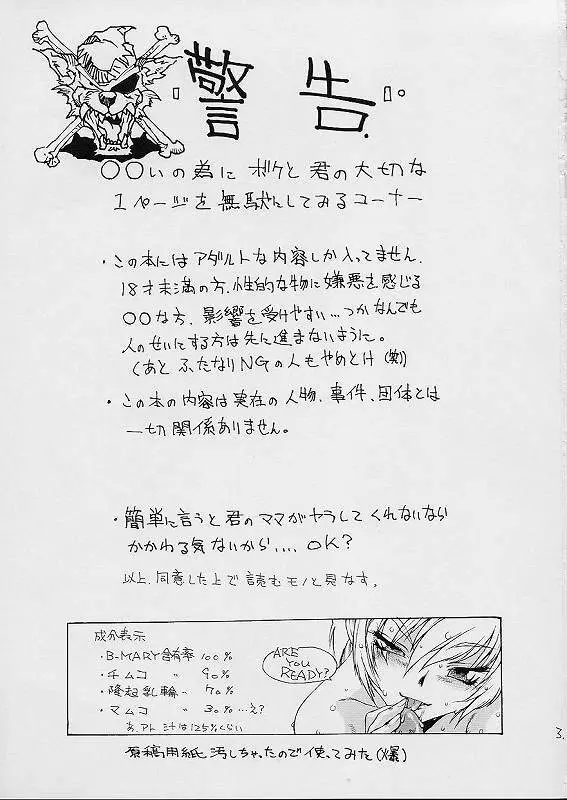 警告。
○○いの為にボケと君の大切な
1ページを無駄にしてみるコーナー
・この本にはアダルトな内容しか入ってません。
18才未満の方、性的な物に嫌悪を感じる
○○な方、影響を受けやすい…つかなんでも
人のせいにする方は先に進まないように。
(あと ふたなりNGの人もやめとけ(笑))
・この本の内容は実在の人物、事件、団体とは
一切関係ありません。
・簡単に言うと君のママがヤラしてくれないなら
かかわる気ないから.... OK?
以上、同意した上で読むモノと見なす。
成分表示
・B-MARY含有率 100%
・チムコ 〃 90%
・隆起乳輪 〃 70%
・マムコ 〃 30% …え?
あ、アト 汁は125%くらい
ARE YOU READY?
原稿用紙汚しちゃったので使ってみた(爆)
3.